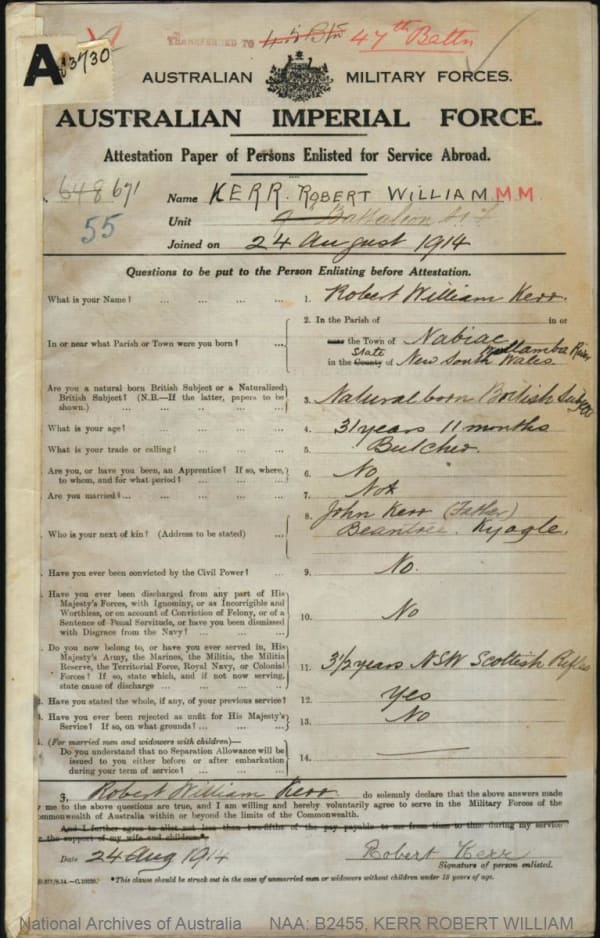 TRANSFERRED TO 45 Btn 47th Battn
A
33730
AUSTRALIAN MILITARY FORCES.
AUSTRALIAN IMPERIAL FORCE.
Attestation Paper of Persons Enlisted for Service Abroad.
648 671
55
Name KERR. ROBERT WILLIAM M.M
Unit 9 Battalion
Joined on 24 August 1914
Questions to be put to the Person Enlisting before Attestation.
What is your Name? ... ... ... ... 1. Robert William Kerr.
2. In the Parish of in or
In or near what Parish or Town were you born? ... near the Town of Nabiac Wallamba River
in the County State of New South Wales
Are you a natural born British Subject or a Naturalized British Subject? (N.B.—If the latter, papers to be shown.) ... ... ... ... 3. Natural born British Subject
What is your age? ... ... ... ... 4. 31 years 11 months
What is your trade or calling? ... ... ... 5. Butcher.
Are you, or have you been, an Apprentice? If so, where, to whom, and for what period? ... ... ... 6. No
Are you married? ... ... ... ... ... 7. Not
Who is your next of kin? (Address to be stated) ... 8. John Kerr (Father)
Beantree. Kyogle.
. Have you ever been convicted by the Civil Power? ... 9. No.
. Have you ever been discharged from any part of His
Majesty's Forces, with Ignominy, or as Incorrigible and
Worthless, or on account of Conviction of Felony, or of a
Sentence of Penal Servitude, or have you been dismissed
with Disgrace from the Navy? ... ... ... 10. No
. Do you now belong to, or have you ever served in, His
Majesty's Army, the Marines, the Militia, the Militia
Reserve, the Territorial Force, Royal Navy, or Colonial
Forces? If so, state which, and if not now serving,
state cause of discharge ... ... ... ... 11. 3½ years NSW Scottish Rifles
. Have you stated the whole, if any, of your previous service? 12. Yes
. Have you ever been rejected as unfit for His Majesty's
Service? If so, on what grounds? ... ... ... 13. No
. (For married men and widowers with children)—
Do you understand that no Separation Allowance will be
issued to you either before or after embarkation
during your term of service? ... ... ... 14.
I, Robert William Kerr do solemnly declare that the above answers made
by me to the above questions are true, and I am willing and hereby voluntarily agree to serve in the Military Forces of the
Commonwealth of Australia within or beyond the limits of the Commonwealth.
And I further agree to allot not less than two-fifths of the pay payable to me from time to time during my service
for the support of my wife and children.*
Date 24 Aug 1914 Robert Kerr
Signature of person enlisted.
*This clause should be struck out in the case of unmarried men or widowers without children under 18 years of age.
National Archives of Australia NAA: B2455, KERR ROBERT WILLIAM